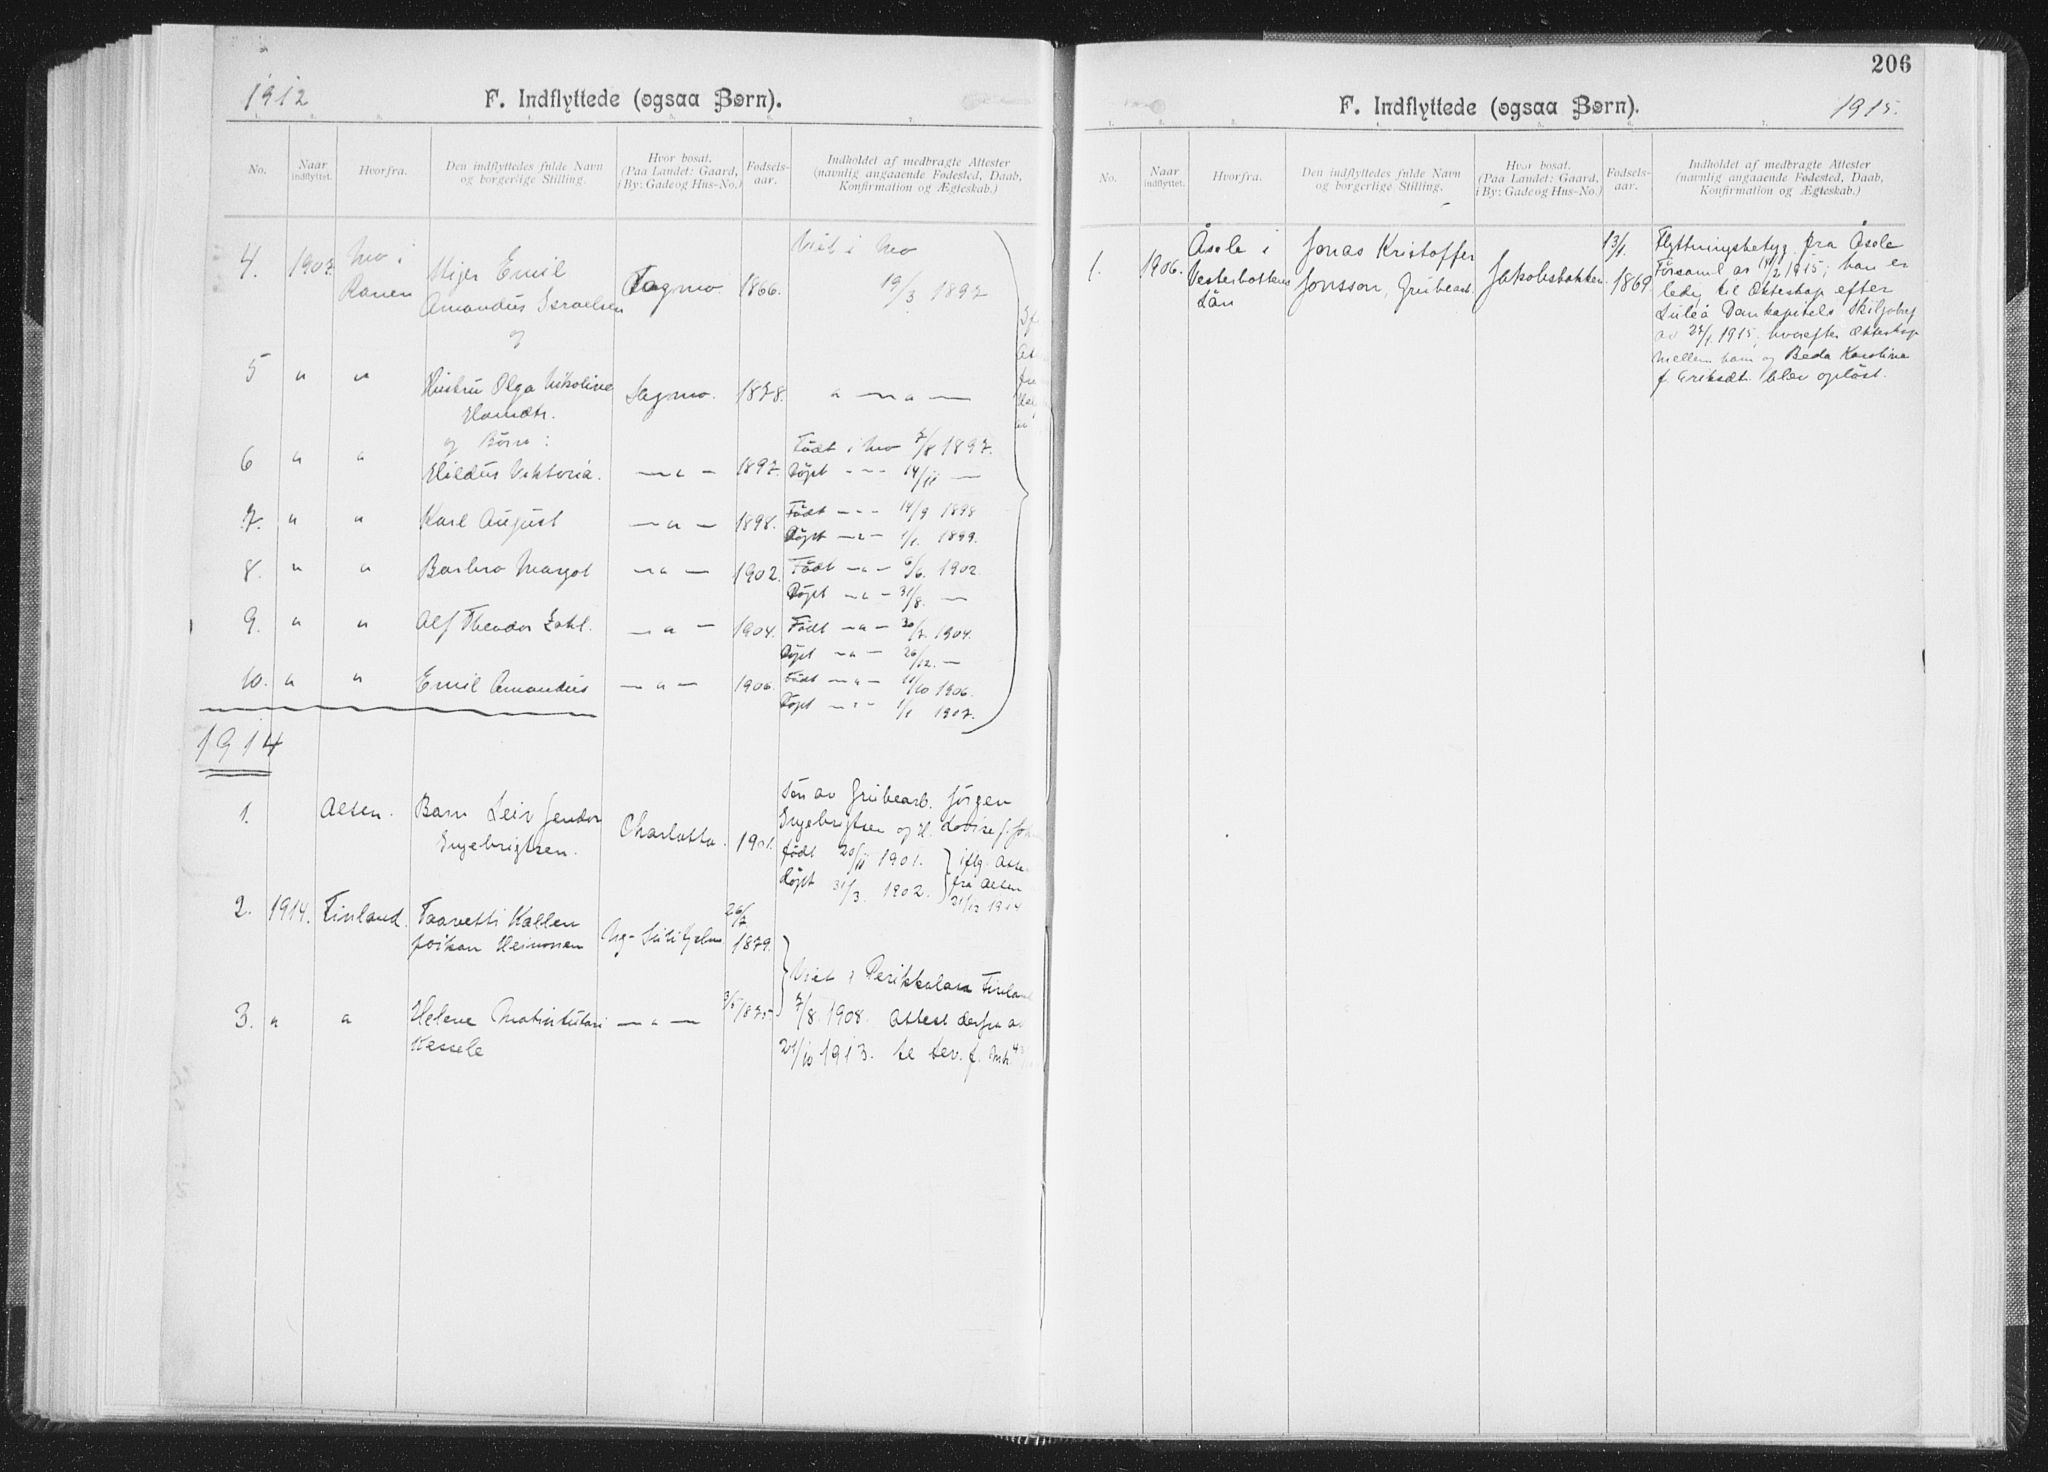 1912
F. Indflyttede (ogsaa Børn).
1. 2. 3. 4. 5. 6. 7.
No.
Naar indflyttet.
Hvorfra.
Den indflyttedes fulde Navn
og borgerlige Stilling.
Hvor bosat.
(Paa Landet: Gaard,
i By: Gade og Hus-No.)
Fødsels-
aar.
Indholdet af medbragte Attester
(navnlig angaaende Fødested, Daab,
Konfirmation og Ægteskab.)
4. 1907. Mo i
Ranen
Emil
Amandus Israelsen
og
Fagmo. 1866.
Viet i Mo
19/3 1897
5 " "
Hustru Olga Nikoline
Hansdtr.
Fagmo. 1878. " — " —
og Børn:
6 " " Hildur Viktoria. — " — 1897.
Født i Mo 7/8 1897.
Døpt - - - 14/11 —
7. " " Karl August — " — 1898.
Født - - - 14/9 1898
Døpt — " — 1/1 1899.
8. " " Barbro Margot — " — 1902.
Født — " — 6/6. 1902.
Døpt — " — 31/8. —
9. " " Alf Theodor Zahl. — " — 1904.
Født — " — 30/7. 1904.
Døpt — " — 26/12. —
10. " " Emil Amandus — " — 1906.
Født — " — 11/10 1906.
Døpt — " — 1/1 1907.
1914
1. Alten. Barn Leiv Jendor
Ingebrigtsen.
Charlotta. 1901.
Søn av Grubearb. Jörgen
Ingebrigtsen og H. Lovise f.
født 20/11 1901.
døpt 31/3. 1902.
iflg. Atte
fra Alten
31/12 1914
2. 1914. Finland. Taavetti Kallen
poikan Heinonen
Ny-Sulitjelma
26/7
1879.
3. " " Helene Matintutari
Kessele
— " — 3/5 1875
Viet i Perikkalan Finland
7/8. 1908. Attest derfra av
21/10 1913. se lev. f. Nr. 43
206
F. Indflyttede (ogsaa Børn).
1915.
1. 2. 3. 4. 5. 6. 7.
No.
Naar indflyttet.
Hvorfra.
Den indflyttedes fulde Navn
og borgerlige Stilling.
Hvor bosat.
(Paa Landet: Gaard,
i By: Gade og Hus-No.)
Fødsels-
aar.
Indholdet af medbragte Attester
(navnlig angaaende Fødested, Daab,
Konfirmation og Ægteskab.)
1. 1906. Åsele i
Vesterbottens
Län
Jonas Kristoffer
Jonsson, Grubearb.
Jakobsbakken.
13/1.
1869.
Flyttningsbetyg fra Åsele
Församl. av 14/2 1915; han er
ledig til Ækteskap efter
Luleå Domkapitels Skiljobref
av 27/1 1915, hvorefter Ækteskap
mellem ham og Beda Karolina
f. Eriksdt. blev opløst.